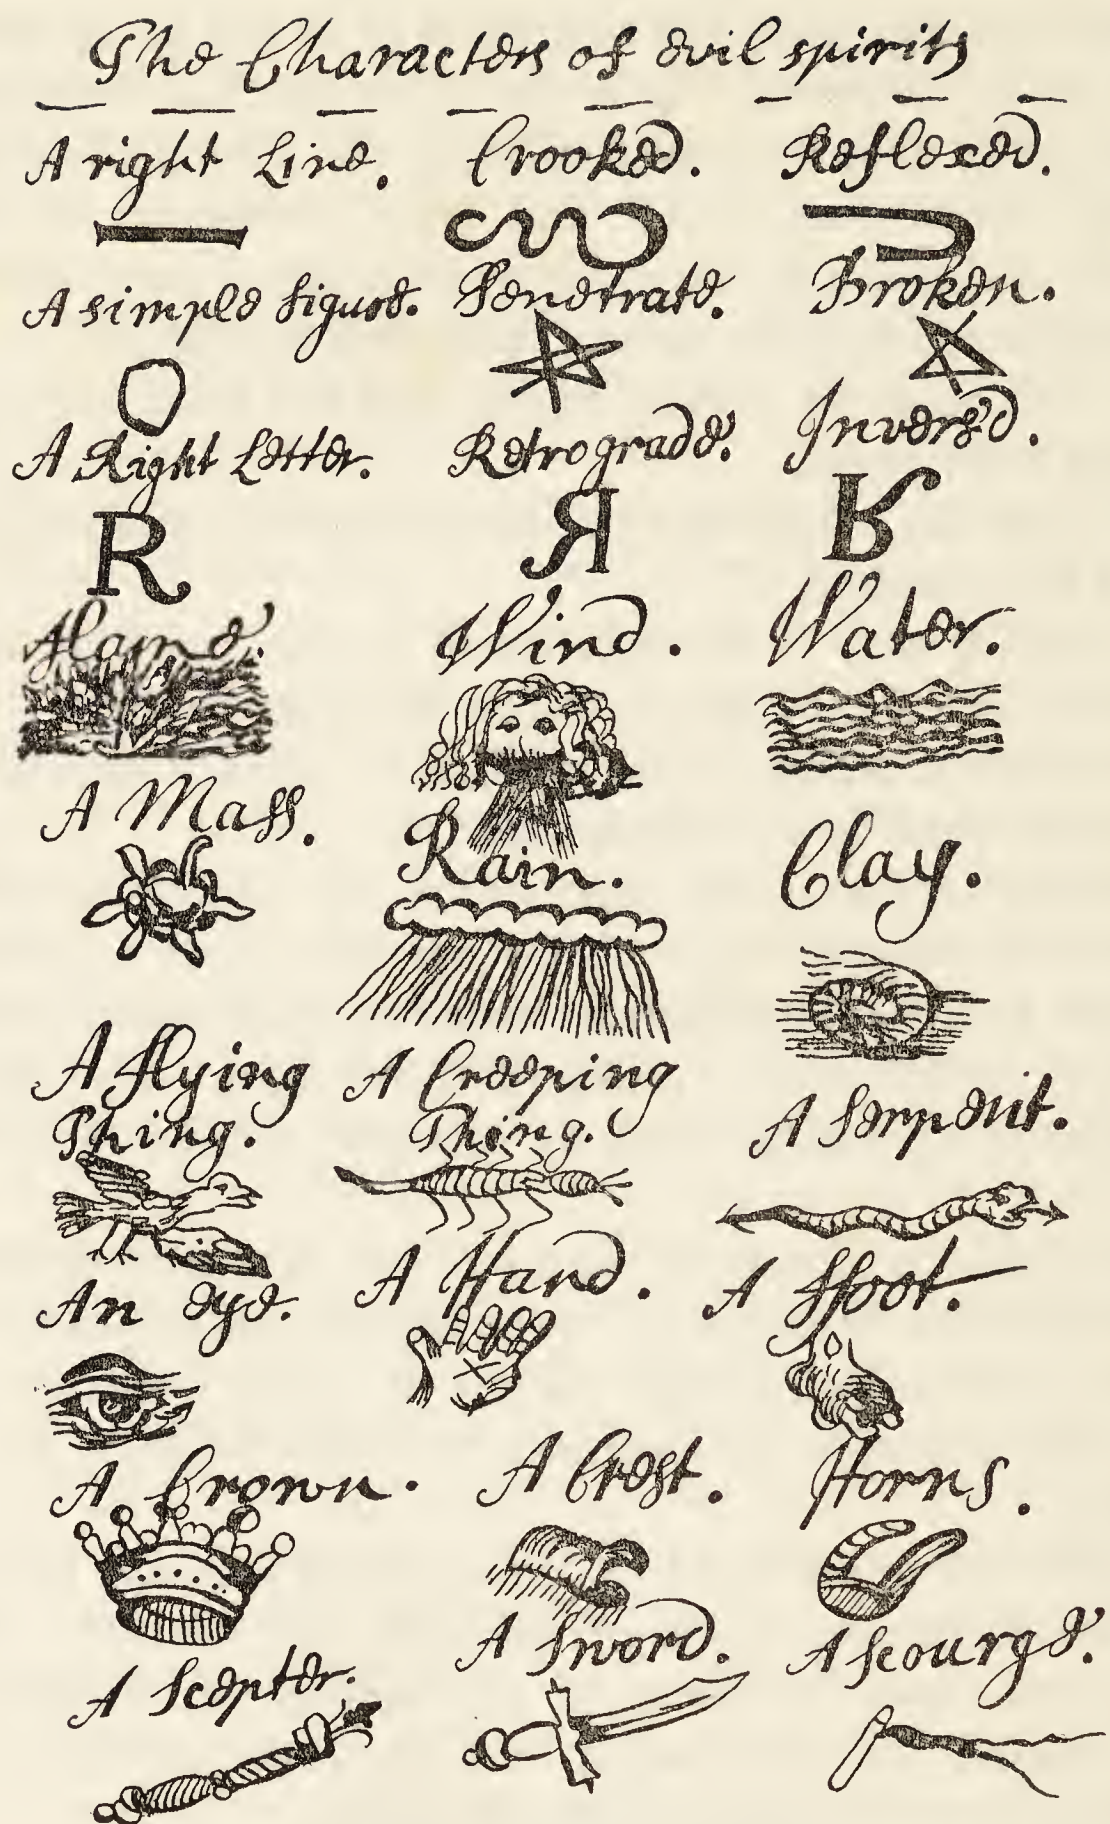 The Characters of evil spirits
A right Line. Crooked. Reflexed.
A simple figure. Penetrate. Broken.
A Right Letter. Retrograde. Invers'd.
R R R
Flame. Wind. Water.
A Mass. Rain. Clay.
A flying A Creeping
Thing. Thing. A Serpent.
An eye. A Hand. A ffoot.
A Crown. A Crest. Horns.
A Scepter. A Sword. A Scourge.